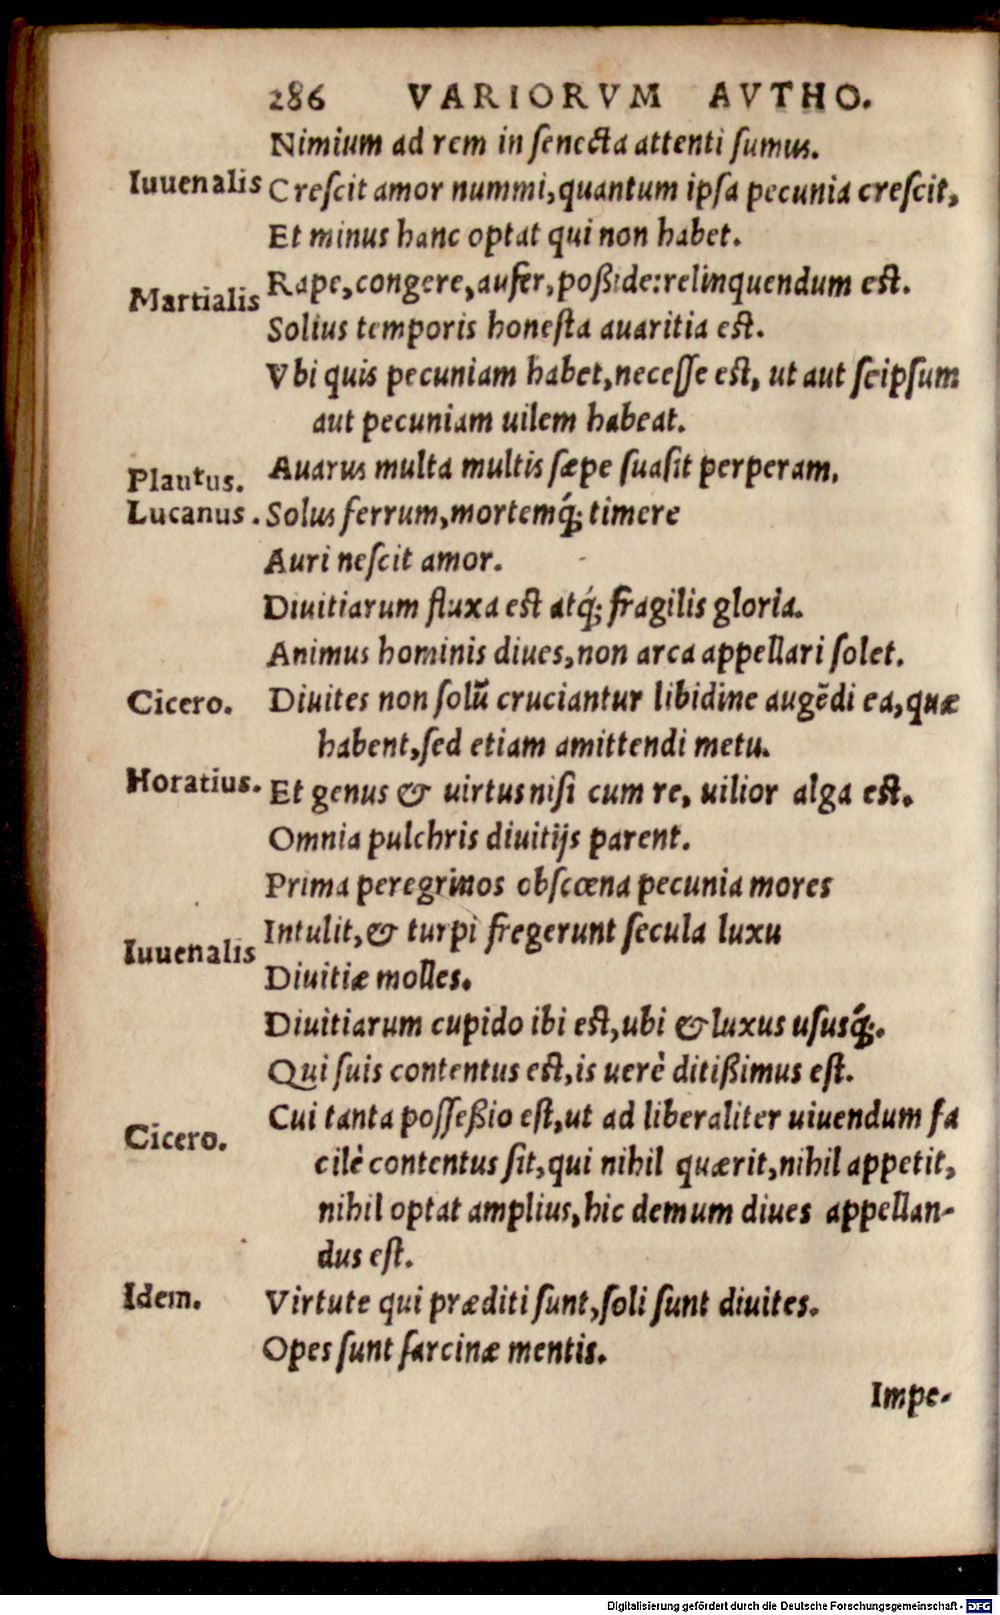 286 VARIORVM AVTHO.
Nimium ad rem in ſenecta attenti ſumus.
Iuuenalis Creſcit amor nummi, quantum ipſa pecunia creſcit,
Et minus hanc optat qui non habet.
Martialis Rape, congere, aufer, poßide: relinquendum est.
Solius temporis honeſta auaritia est.
Vbi quis pecuniam habet, neceſſe est, ut aut ſeipſum
aut pecuniam uilem habeat.
Plautus. Auarus multa multis ſæpe ſuaſit perperam.
Lucanus. Solus ferrum, mortemq́; timere
Auri neſcit amor.
Diuitiarum fluxa est atq́; fragilis gloria.
Animus hominis diues, non arca appellari ſolet.
Cicero. Diuites non ſolũ cruciantur libidine augẽdi ea, quæ
habent, ſed etiam amittendi metu.
Horatius. Et genus & uirtus niſi cum re, uilior alga est.
Omnia pulchris diuitijs parent.
Prima peregrinos obſcœna pecunia mores
Iuuenalis Intulit, & turpi fregerunt ſecula luxu
Diuitiæ molles.
Diuitiarum cupido ibi est, ubi & luxus uſusq́;.
Qui ſuis contentus est, is uerè ditißimus eſt.
Cicero. Cui tanta poſſeßio eſt, ut ad liberaliter uiuendum fa
cilè contentus ſit, qui nihil quærit, nihil appetit,
nihil optat amplius, hic demum diues appellan-
dus eſt.
Idem. Virtute qui præditi ſunt, ſoli ſunt diuites.
Opes ſunt ſarcinæ mentis.
Impe-
Digitalisierung gefördert durch die Deutsche Forschungsgemeinschaft - DFG